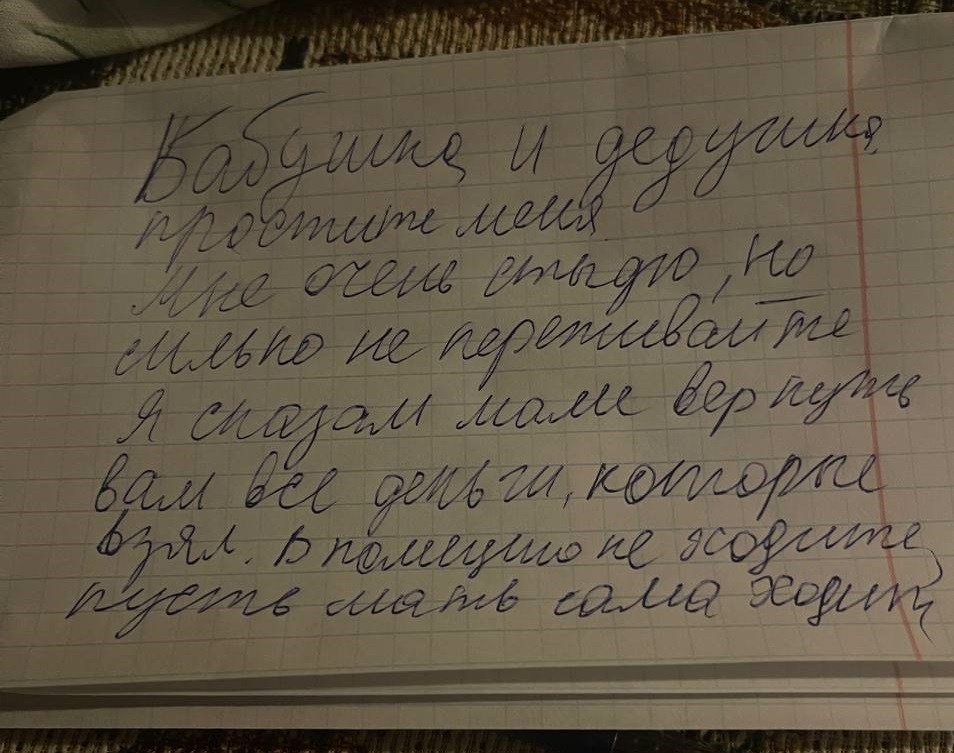 Бабушка и дедушка
простите меня
Мне очень стыдно, но
сильно не переживайте
Я сказал маме вернуть
вам все деньги, которые
взял. В полицию не ходите,
пусть мать сама ходит,